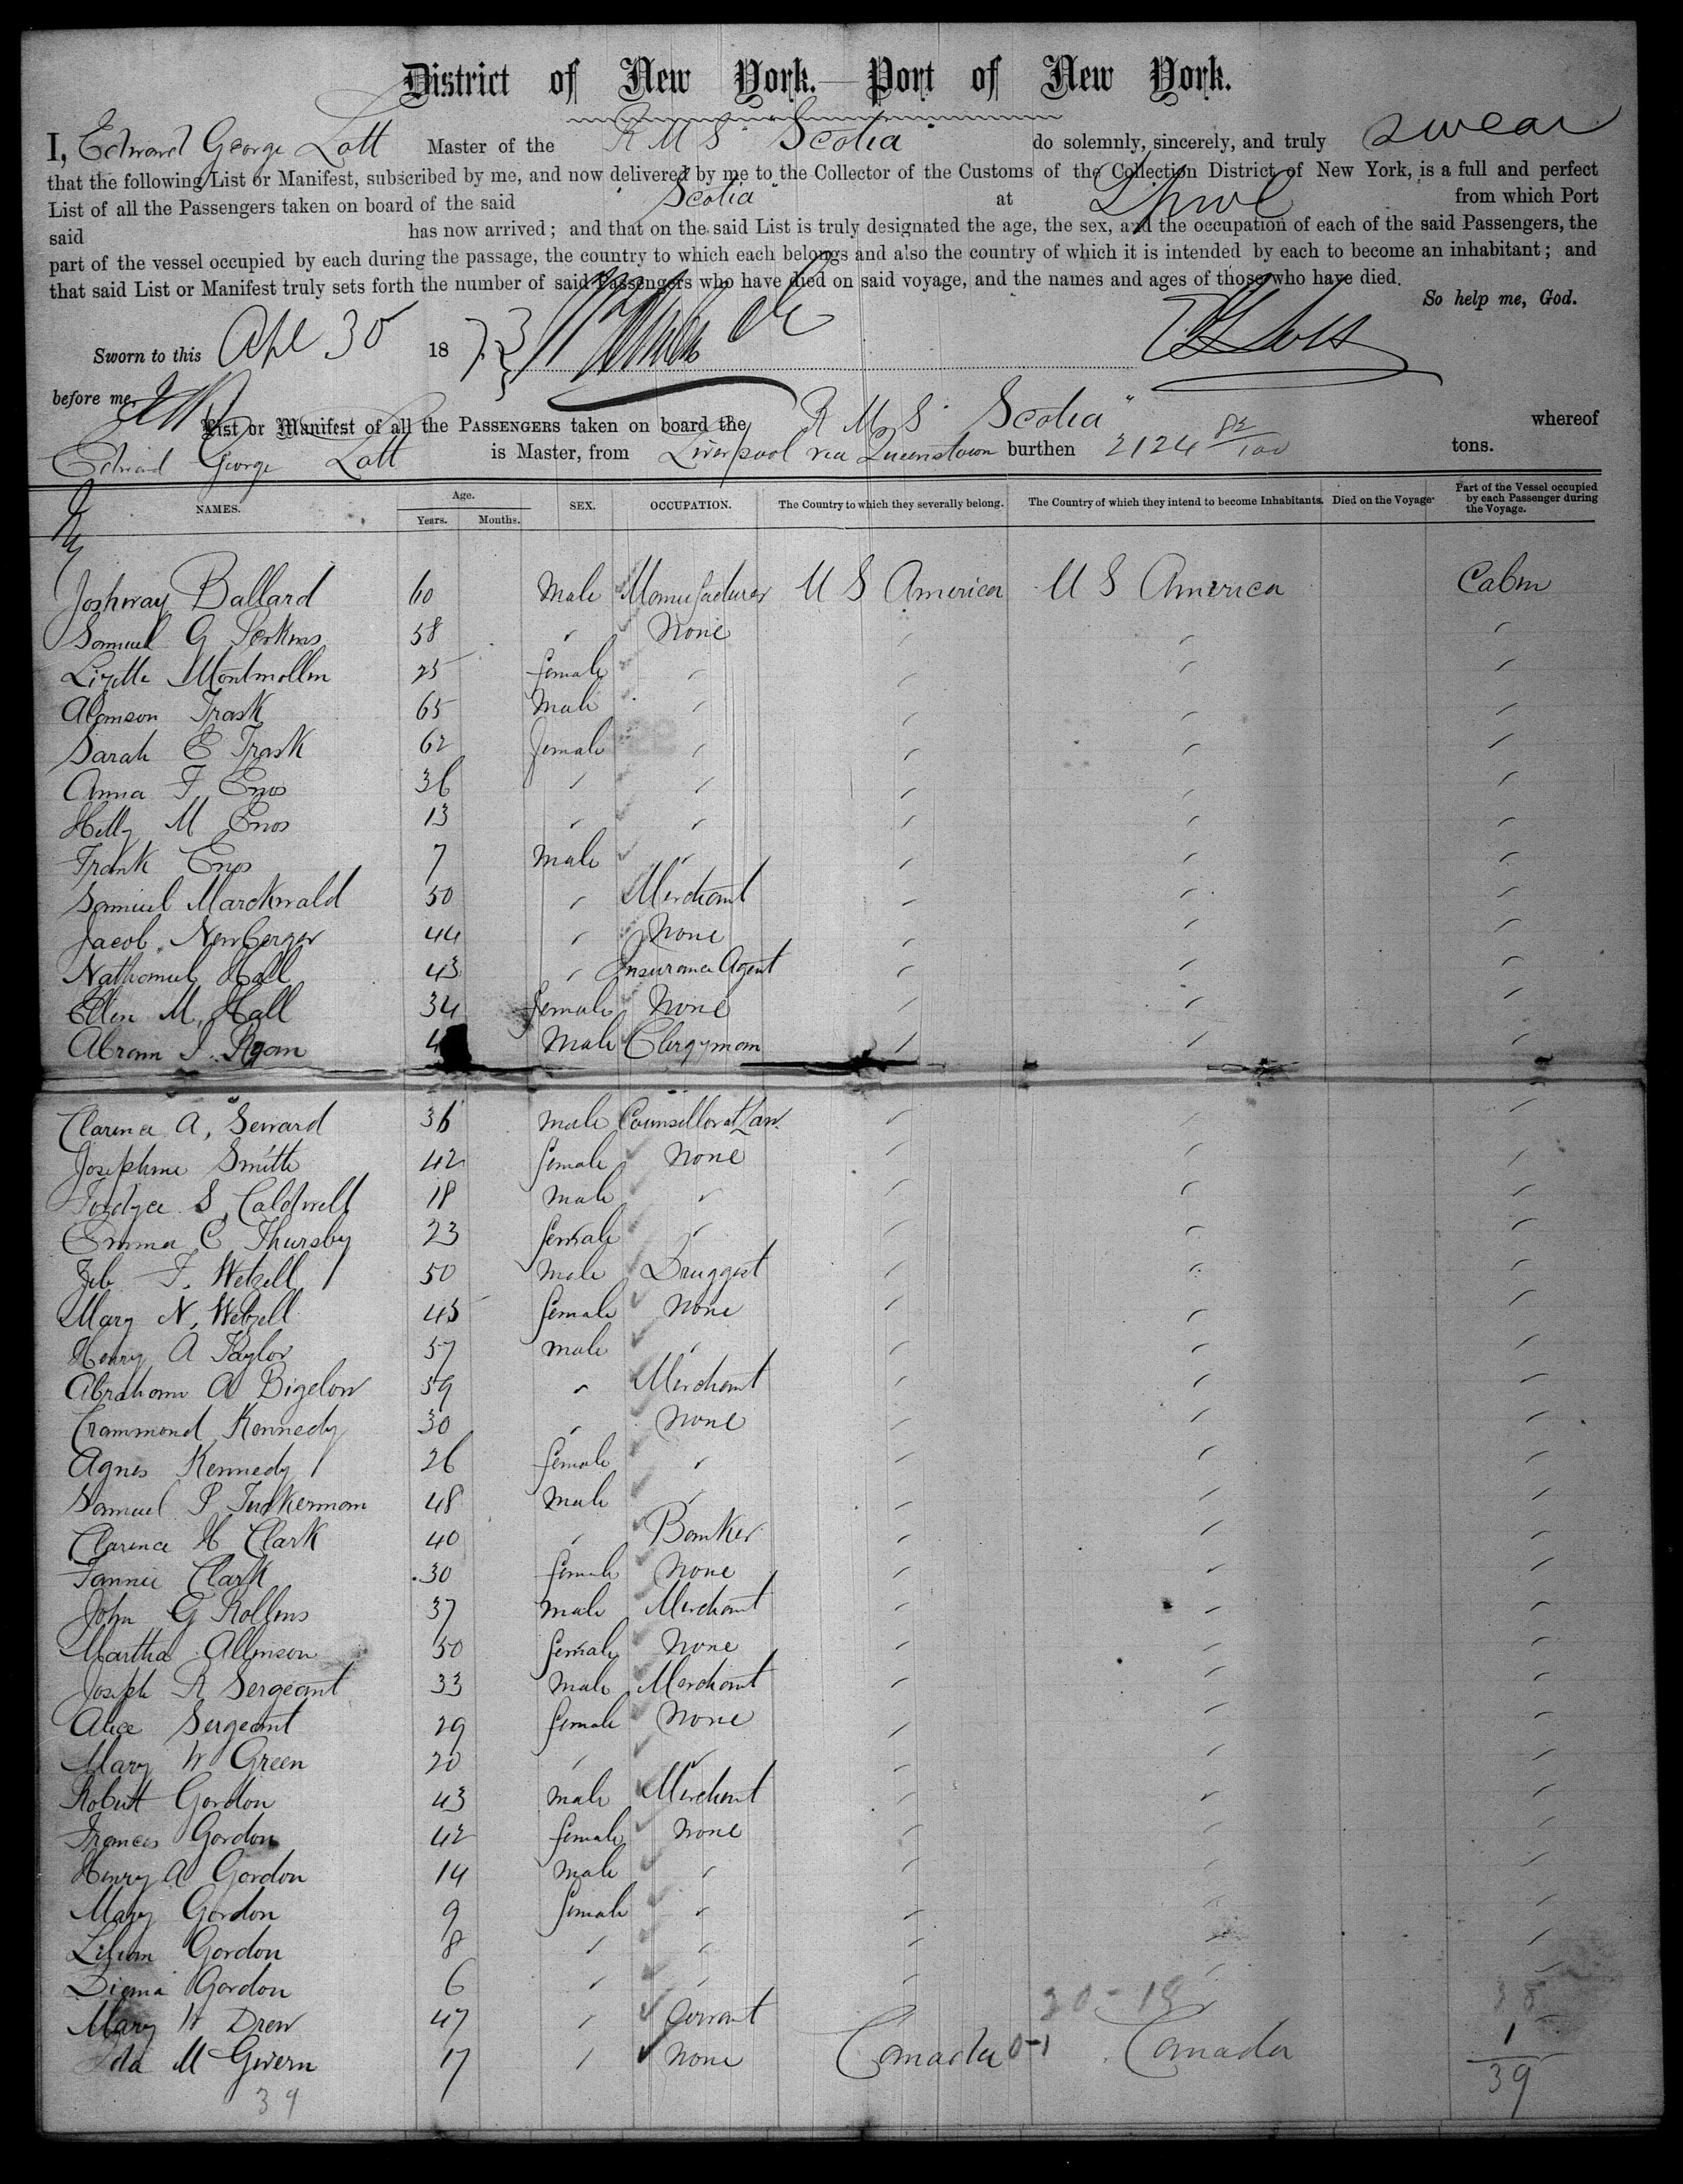 District of New York.—Port of New York.
I, Edward George Lott Master of the R M S "Scotia" do solemnly, sincerely, and truly swear
that the following List or Manifest, subscribed by me, and now delivered by me to the Collector of the Customs of the Collection District of New York, is a full and perfect
List of all the Passengers taken on board of the said "Scotia" at L'pool from which Port
said has now arrived; and that on the said List is truly designated the age, the sex, and the occupation of each of the said Passengers, the
part of the vessel occupied by each during the passage, the country to which each belongs and also the country of which it is intended by each to become an inhabitant; and
that said List or Manifest truly sets forth the number of said Passengers who have died on said voyage, and the names and ages of those who have died.
So help me, God.
Sworn to this Apl 30 1873 E G Lott
before me,
List or Manifest of all the PASSENGERS taken on board the R M S "Scotia" whereof
Edward George Lott is Master, from Liverpool via Queenstown burthen 2124 82/100 tons.
NAMES. Age. Years. Months. SEX. OCCUPATION. The Country to which they severally belong. The Country of which they intend to become Inhabitants. Died on the Voyage. Part of the Vessel occupied by each Passenger during the Voyage.
Joshway Ballard 60 Male Manufacturer U S America U S America Cabin
Samuel G Perkins 58 " None " " "
Lizette Montmollin 25 female " " " "
Alanson Trask 65 Male " " " "
Sarah E Trask 62 female " " " "
Anna F Enos 36 " " " " "
Hetty M Enos 13 " " " " "
Frank Enos 7 Male " " " "
Samuel Marckwald 50 " Merchant " " "
Jacob Newberger 44 " None " " "
Nathaniel Hall 43 " Insurance Agent " " "
Ellen M. Hall 34 female None " " "
Abram J. Ryan 4 Male Clergyman " " "
Clarence A. Seward 36 male Counsellor at Law " " "
Josephine Smith 42 female None " " "
Fordyce S. Caldwell 18 male " " " "
Emma C Thursby 23 female " " " "
F. Wetzell 50 Male Druggest " " "
Mary N. Wetzell 45 female None " " "
Henry A Taylor 57 male " " " "
Abraham A Bigelow 59 " Merchant " " "
Crammond Kennedy 30 " None " " "
Agnes Kennedy 26 female " " " "
Samuel P Tuckerman 48 Male " " " "
Clarence H Clark 40 " Banker " " "
Fannie Clark 30 female None " " "
John G Rollins 37 male Merchant " " "
Martha Allinson 50 female None " " "
Joseph R Sergeant 33 Male Merchant " " "
Alice Sergeant 29 female None " " "
Mary W Green 20 " " " " "
Robert Gordon 43 male Merchant " " "
Frances Gordon 42 female None " " "
Henry A Gordon 14 Male " " " "
Mary Gordon 9 female " " " "
Lilian Gordon 8 " " " " "
Gordon 6 " " " " "
20-18 38
Mary W Drew 47 " Servant " " "
Ida M Givern 17 " None Canada 0-1 Canada 1
39 39